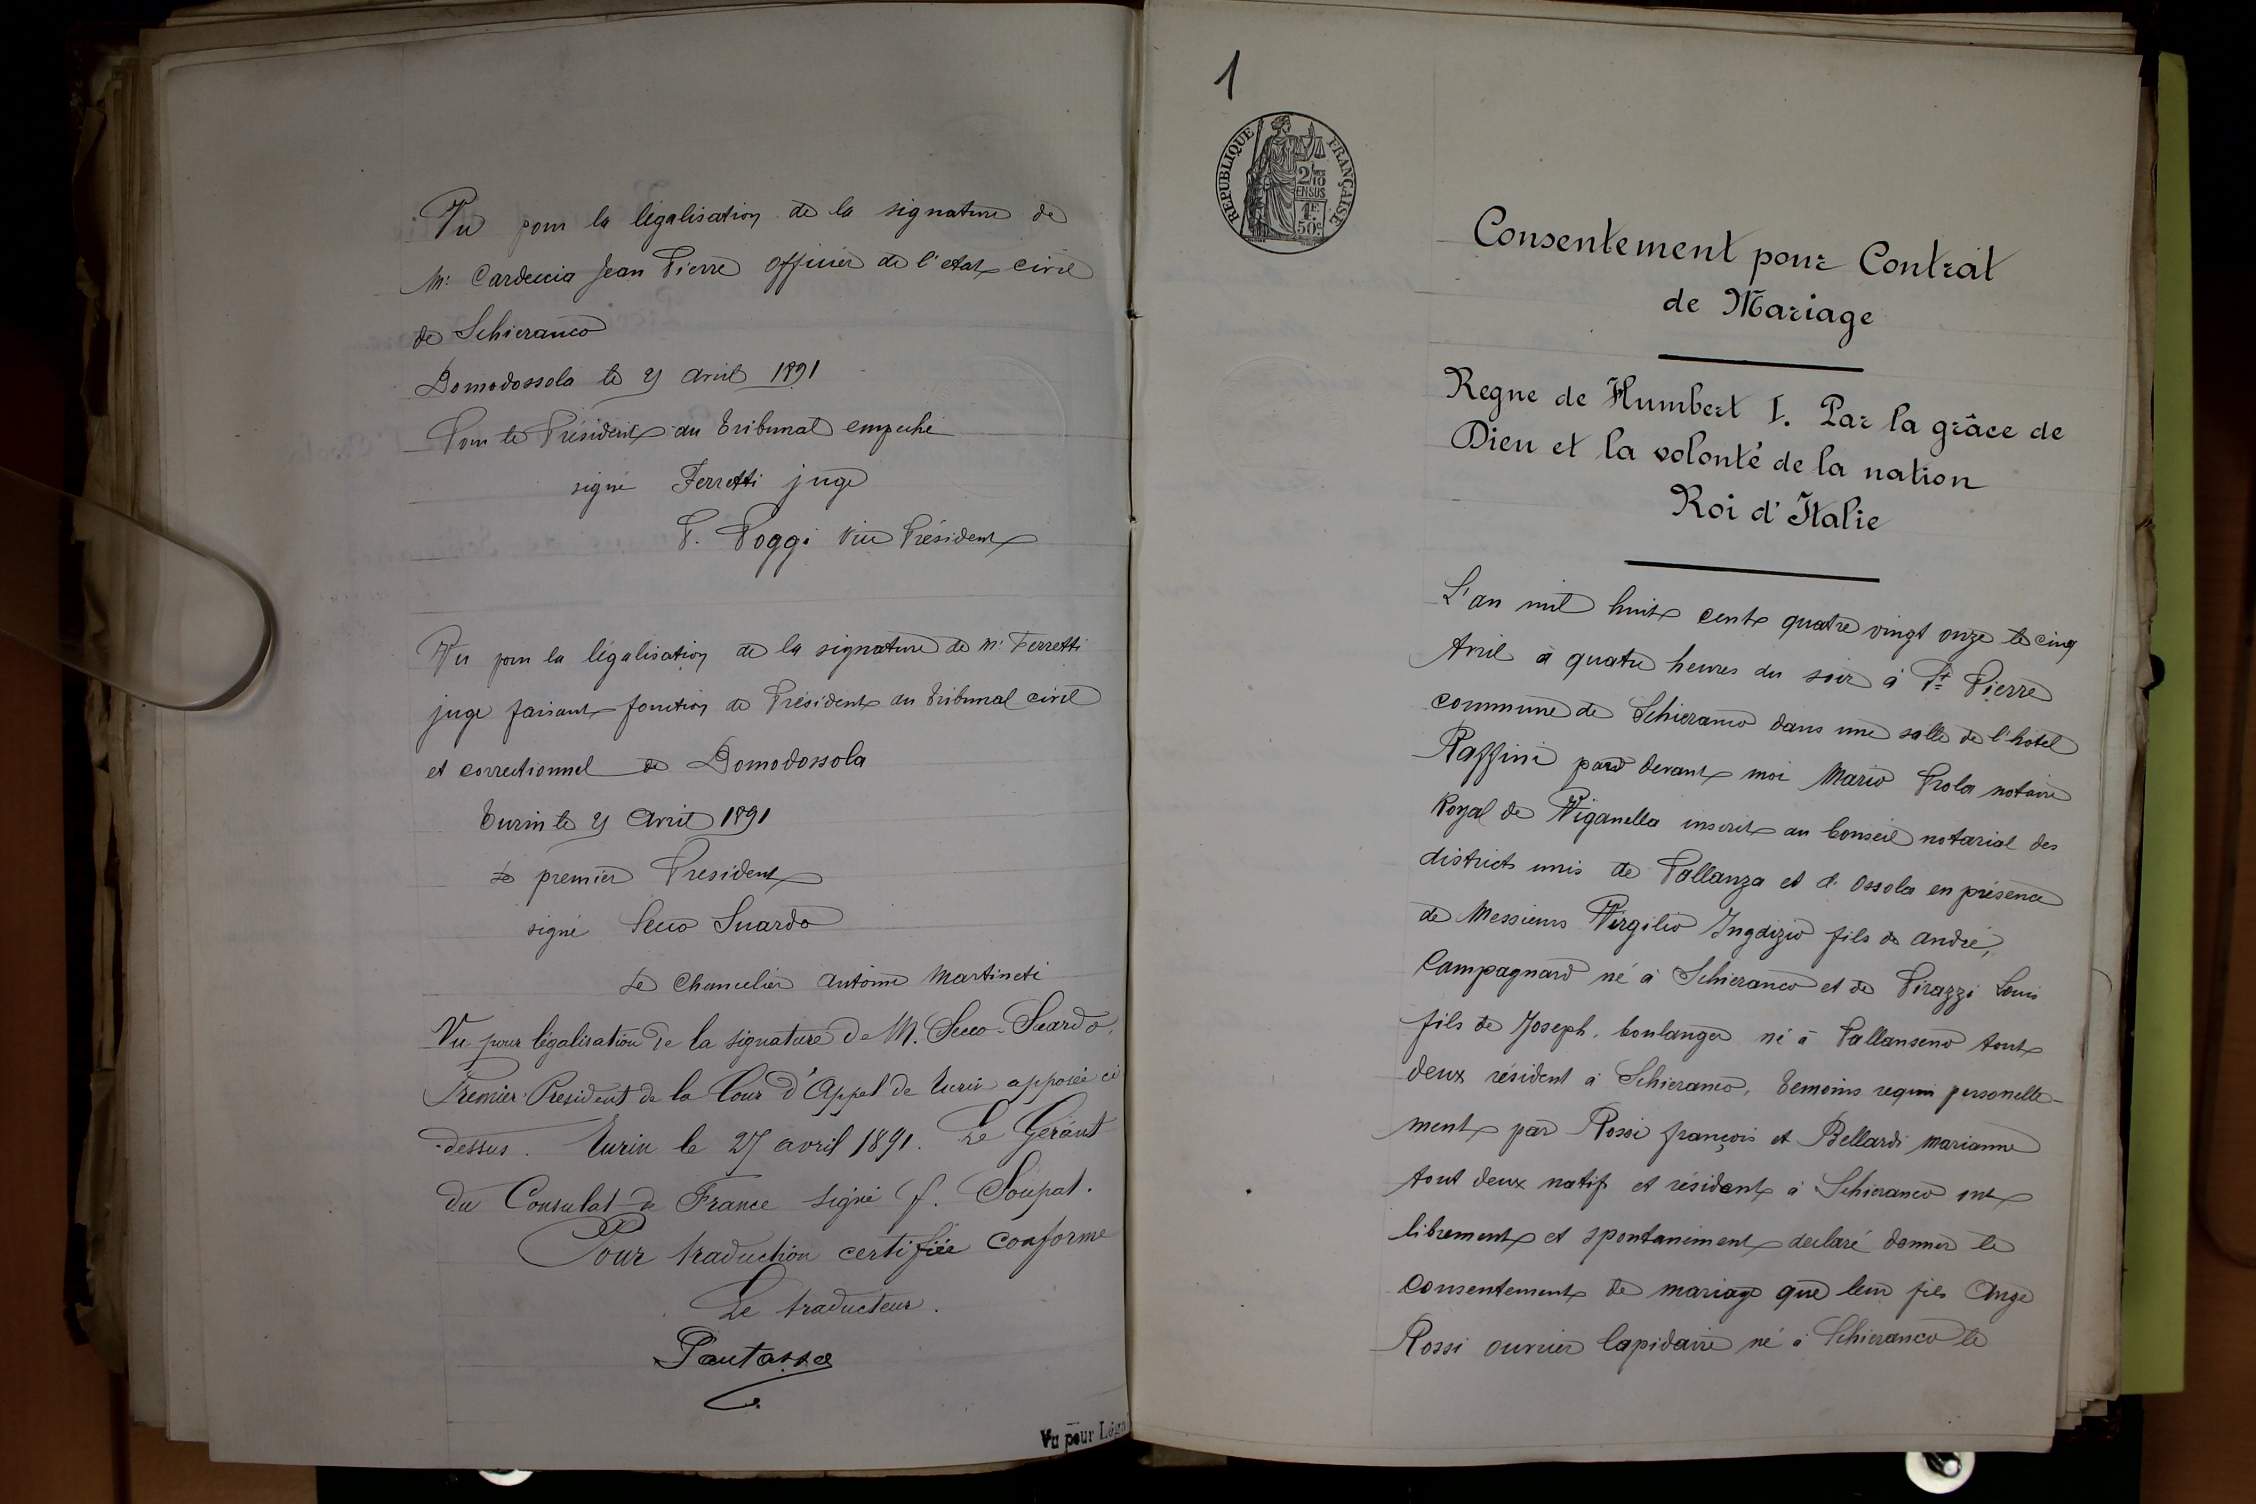 Vu pour la légalisation de la signature de
Mr Carduccia Jean Pierre officier de l'etat civil
de Schieranco
Domodossola le 21 avril 1891
Pour le Président du Tribunal empeché
signé Ferretti juge
P. Poggi Vice Président
Vu pour la légalisation de la signature de Mr Ferretti
juge faisant fonction de Président du Tribunal civil
et correctionnel de Domodossola
Turin le 21 Avril 1891
Le premier President
signé Secco Suardo
Le Chancelier Antoine Martineti
Vu pour légalisation de la signature de M. Secco-Suardo,
Premier Président de la Cour d'Appel de Turin apposée ci
-dessus. Turin le 27 avril 1891. Le Gérant
du Consulat de France signé f. Soupat.
Pour traduction certifiée conforme
Le traducteur.
Pautasso
Vu pour Léga
1
REPUBLIQUE FRANÇAISE
2/10
EN SUS
1F
50c
Consentement pour Contrat
de Mariage
Regne de Humbert I. Par la grâce de
Dieu et la volonté de la nation
Roi d'Italie
L'an mil huit cent quatre vingt onze le cinq
Avril à quatre heures du soir à St Pierre
commune de Schieranco dans une salle de l'hotel
Raffini par devant moi Mario Prola notaire
Royal de Viganella inscrit au Conseil notarial des
districts unis de Pallanza et d'Ossola en présence
de Messieurs Virgilio Ingdizio fils de André,
Campagnard né à Schieranco et de Pirazzi Louis
fils de Joseph, boulanger né à Pallanseno tout
deux résident à Schieranco, temoins requis personelle-
ment par Rossi françois et Bellardi Marianne
tout deux natif et résident à Schieranco ont
librement et spontanément declaré donner le
Consentement de mariage que leur fils Ange
Rossi ouvrier lapidaire né à Schieranco le